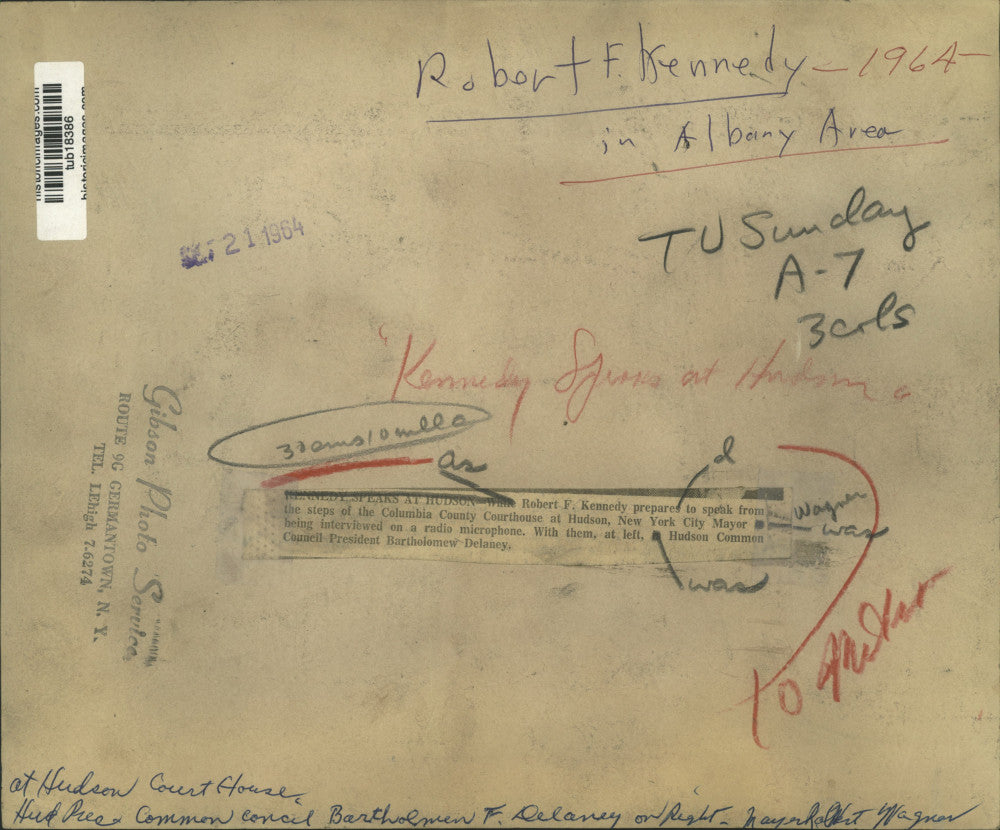 Robert F. Kennedy - 1964 -
in Albany Area
historicimages.com
tub18386
historicimages.com
21 1964
TU Sunday
A-7
3 cols
"Kennedy Speaks at Hudson
as
d
KENNEDY SPEAKS AT HUDSON—While Robert F. Kennedy prepares to speak from
the steps of the Columbia County Courthouse at Hudson, New York City Mayor
being interviewed on a radio microphone. With them, at left, Hudson Common
Council President Bartholomew Delaney.
Wagner
was
was
Gibson Photo Service
ROUTE 9G GERMANTOWN, N. Y.
TEL. LEhigh 7-6274
to
at Hudson Court House.
Common concil Bartholmen F. Delaney on Right - Mayor Robert Wagner